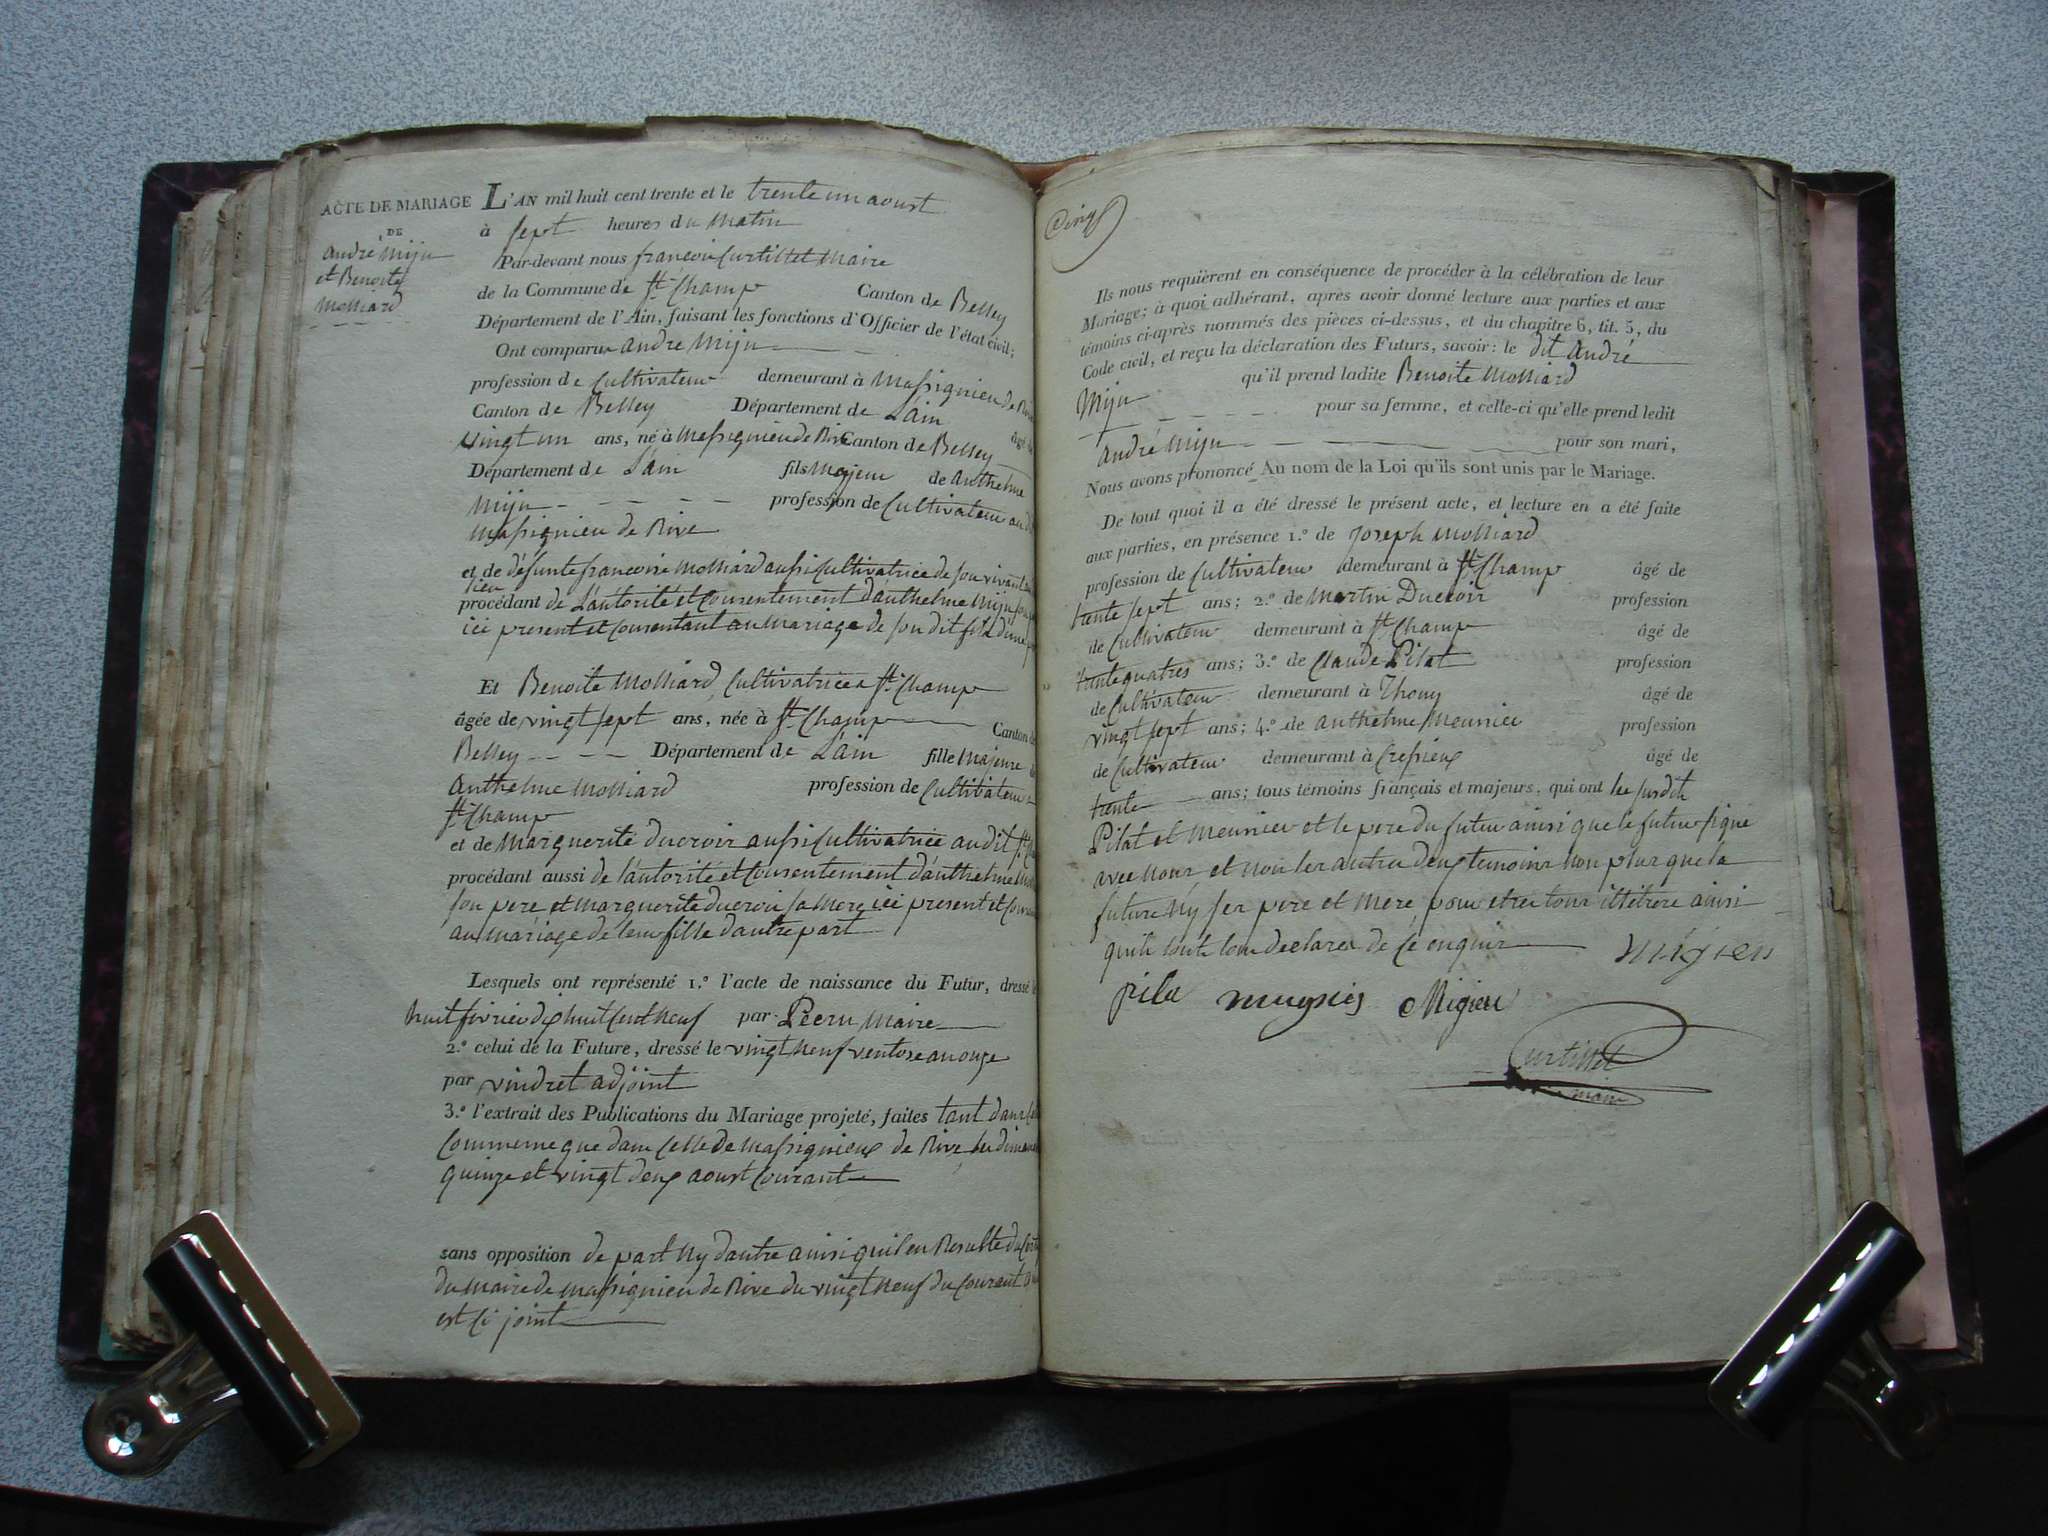 ACTE DE MARIAGE
DE
andré Mijn
et Benoite
Molliard
L'AN mil huit cent trente et le trente un aoust
à sept heures du matin
Par-devant nous francois Curtillet Maire
de la Commune de St. Champ Canton de Belley
Département de l'Ain, faisant les fonctions d'Officier de l'état civil;
Ont comparu andré Mijn
profession de Cultivateur demeurant à Massignieu de Rive
Canton de Belley Département de L'ain âgé de
vingt un ans, né à Massignieu de Rive Canton de Belley
Département de L'ain fils Majeur de anthelme
Mijn profession de Cultivateur
Massignieu de Rive
et de défunte francoise Molliard aussi Cultivatrice de son vivant
procédant de L'autorité et Consentement d'anthelme Mijn
ici present et Consentant au Mariage de son dit fils d'une
Et Benoite Molliard, Cultivatrice a St. Champ
âgée de vingt sept ans, née à St. Champ Canton de
Belley Département de L'ain fille Majeure de
Anthelme Molliard profession de Cultivateur a
St. Champ
et de Marguerite ducroir aussi Cultivatrice au dit St.
procédant aussi de l'autorité et Consentement d'anthelme
son pere et Marguerite ducroir sa Mere ici present et
au mariage de leur fille d'autre part
Lesquels ont représenté 1.º l'acte de naissance du Futur, dressé le
huit fevrier dix huit Cent Neuf par Peeru Maire
2.º celui de la Future, dressé le vingt Neuf ventose an onze
par vindret adjoint
3.º l'extrait des Publications du Mariage projeté, faites tant dans
Commeme que dans Celle de Massignieux de Rive les
quinze et vingt deux aoust Courant
sans opposition de part Ny dautre ainsi quil en Resulte du
du Maire de Massignieu de Rive du vingt Neuf du Courant
est Ci joint
Ils nous requièrent en conséquence de procéder à la célébration de leur
Mariage; à quoi adhérant, après avoir donné lecture aux parties et aux
témoins ci-après nommés des pièces ci-dessus, et du chapitre 6, tit. 5, du
Code civil, et reçu la déclaration des Futurs, savoir: le dit André
Mijn qu'il prend ladite Benoite Molliard
pour sa femme, et celle-ci qu'elle prend ledit
andré Mijn pour son mari,
Nous avons prononcé Au nom de la Loi qu'ils sont unis par le Mariage.
De tout quoi il a été dressé le présent acte, et lecture en a été faite
aux parties, en présence 1.º de Joseph Molliard
profession de Cultivateur demeurant à St. Champ âgé de
trente sept ans; 2.º de Martin Ducroir profession
de Cultivateur demeurant à St. Champ âgé de
trente quatres ans; 3.º de Claude Pilat profession
de Cultivateur demeurant à Thouy âgé de
vingt sept ans; 4.º de anthelme Meunier profession
de Cultivateur demeurant à Cressieux âgé de
trente ans; tous témoins français et majeurs, qui ont les susdits
Pilat et Meunier et le pere du futur ainsi que le futur signé
avec Nous et Non les autres deux temoins Non plus que la
future Ny ses pere et Mere pour etre tous illétérés ainsi
quils l'ont tous declarés de ce enquis
Migieu
pila
Migieu
Curtillet
maire